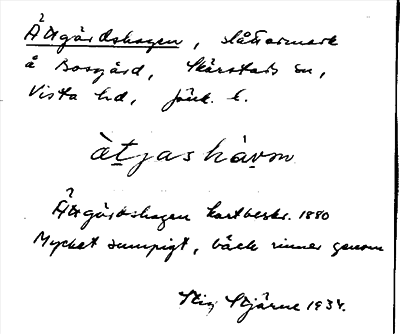 Ättgärdshagen, slåttermark
å Bosgård, Skärstads sn,
Vista hd, Jönk. l.
àt̲jas hàv̲ən
Ättgärdshagen kartbeskr. 1880
Mycket sumpigt, bäck rinner genom
Stig Stjärne 1934.